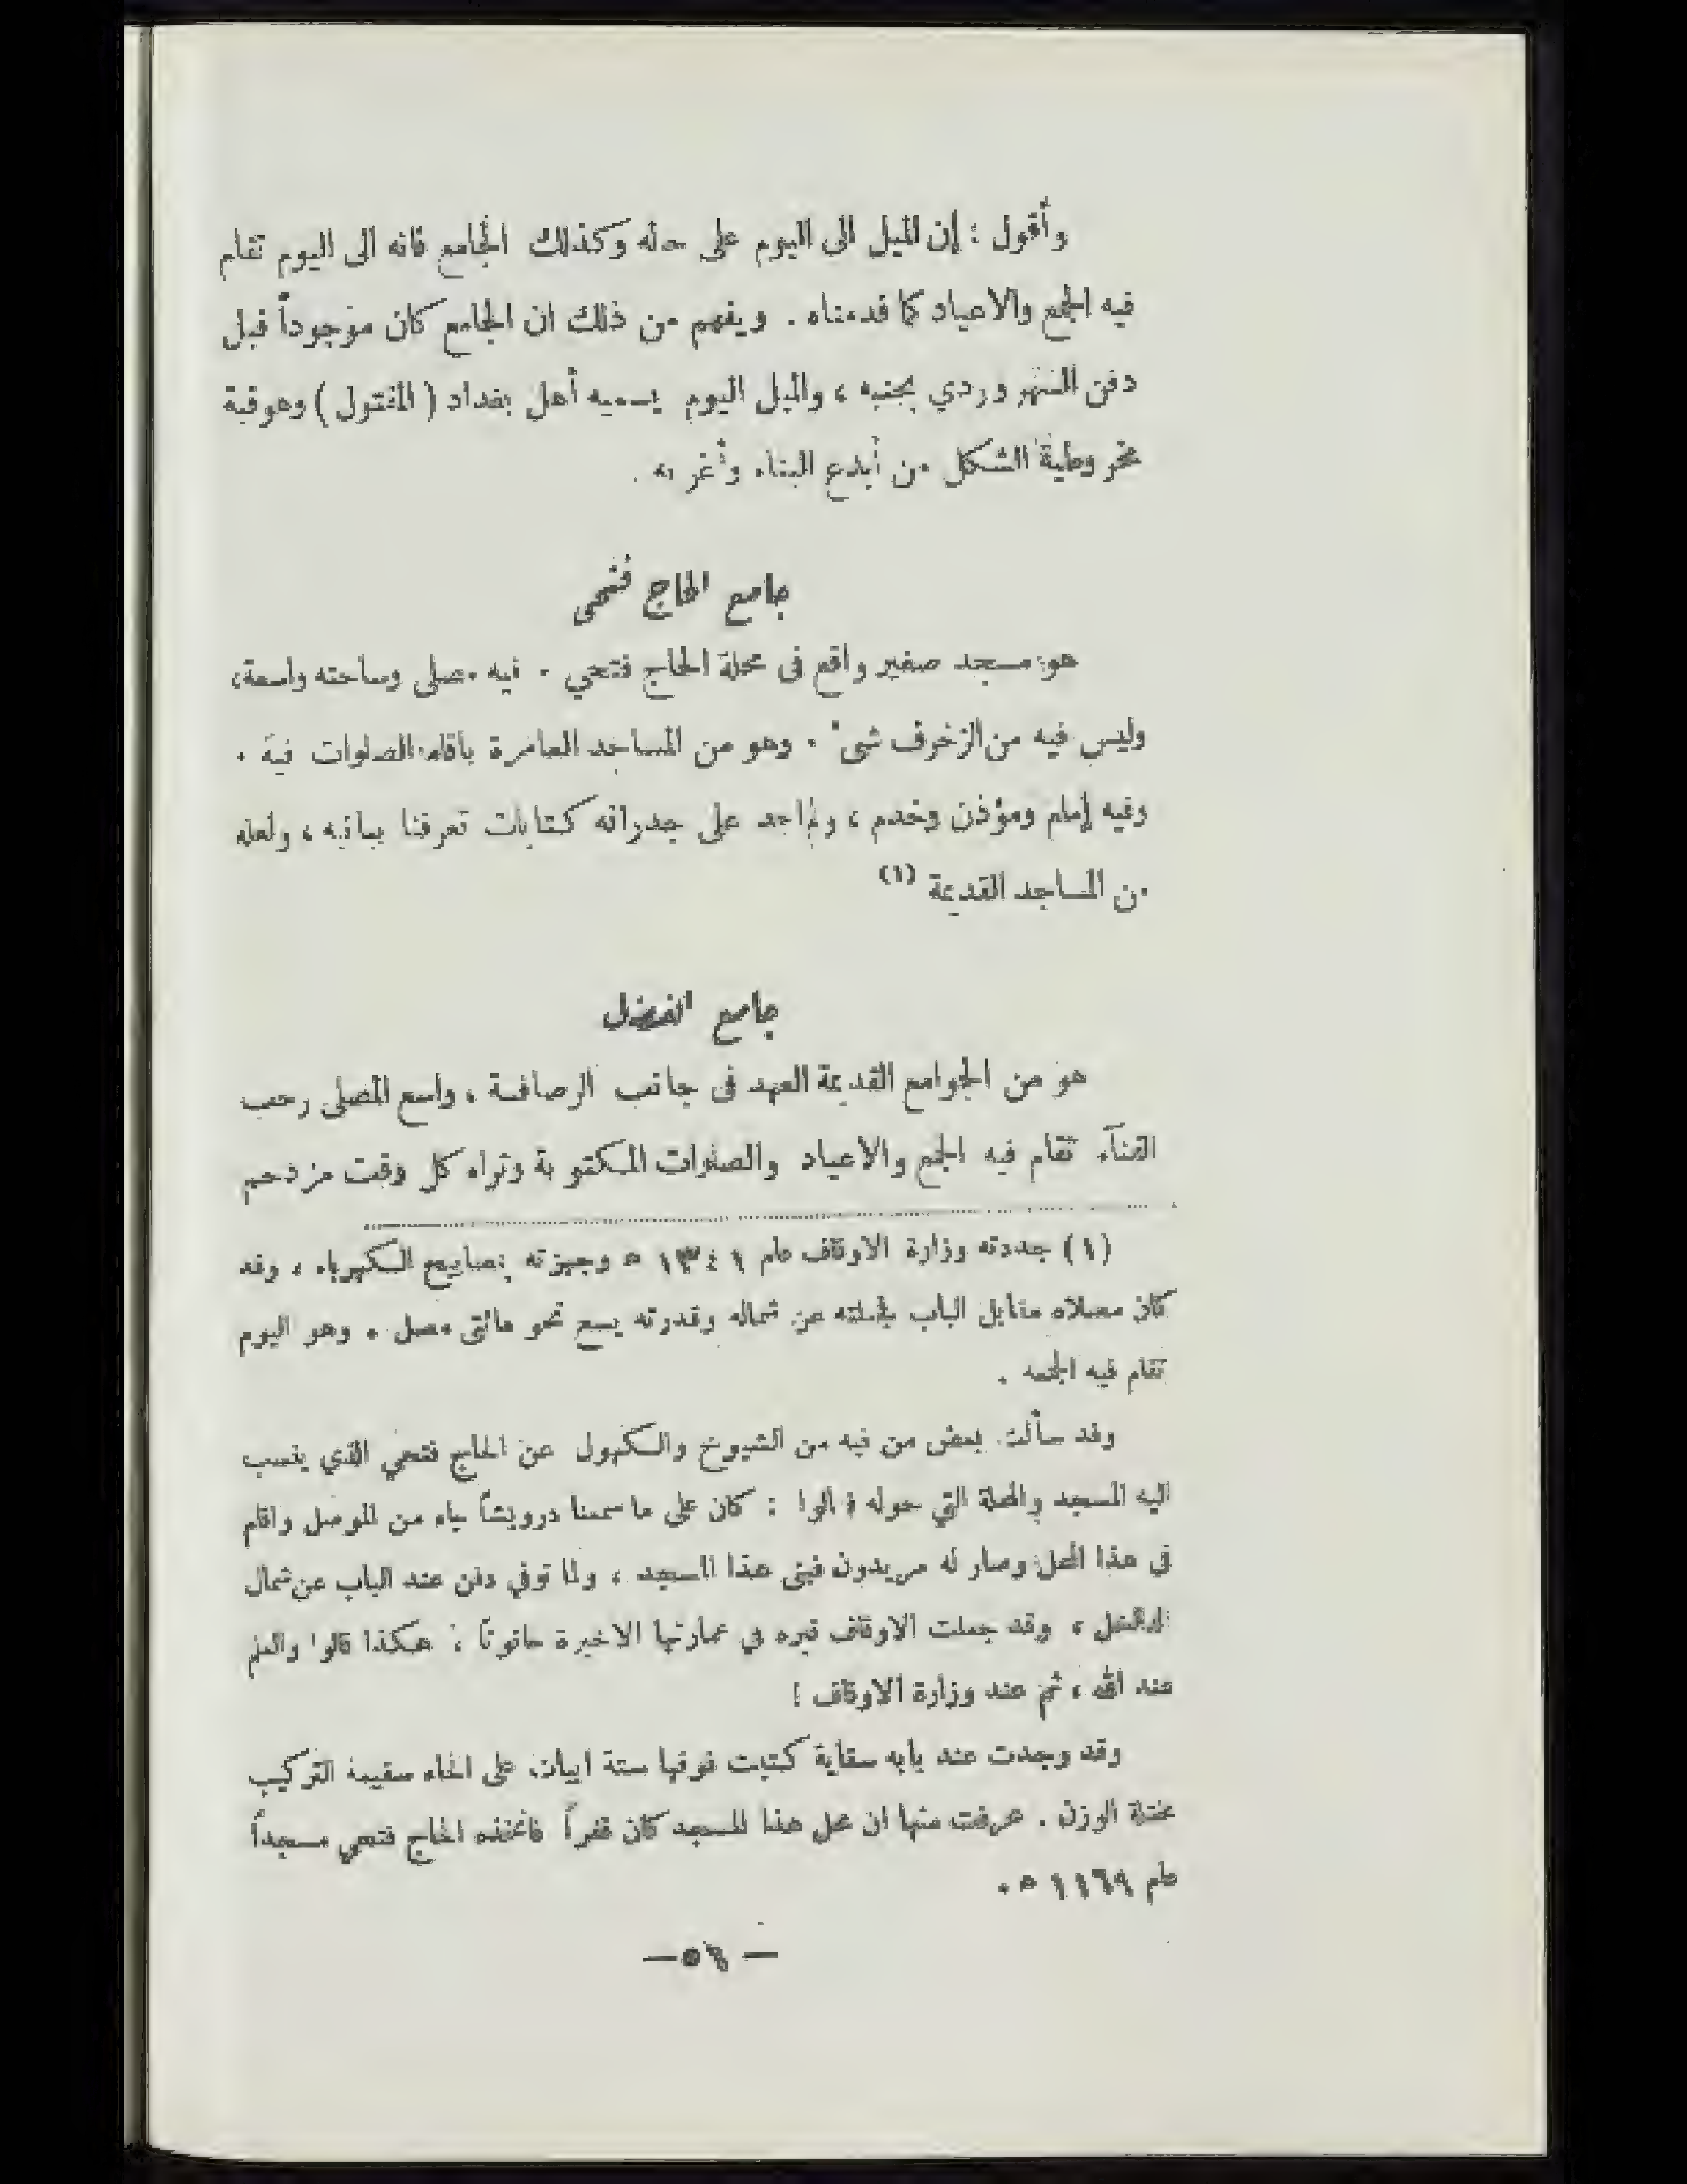 وأقول : إن الميل الى اليوم على حاله وكذلك الجامع فانه الى اليوم تقام
فيه الجمع والاعياد كما قدمناه . ويفهم من ذلك ان الجامع كان موجوداً قبل
دفن السهر وردي بجنبه ، والميل اليوم يسميه أهل بغداد ( المفتول ) وهو قبة
مخروطية الشكل من أبدع البناء وأغربه .
جامع الحاج فتحى
هو مسجد صغير واقع فى محلة الحاج فتحي . فيه مصلى وساحته واسعة ،
وليس فيه من الزخرف شيء . وهو من المساجد العامرة باقامة الصلوات فيه .
وفيه إمام ومؤذن وخدم ، ولم اجد على جدرانه كتابات تعرفنا ببانيه ، ولعله
من المساجد القديمة (١)
جامع الفضل
هو من الجوامع القديمة العهد فى جانب الرصافة ، واسع المصلى رحب
الفناء تقام فيه الجمع والاعياد والصلوات المكتوبة وتراه كل وقت مزدحم
(١) جددته وزارة الاوقاف عام ١٣٤١ ه وجهزته بمصابيح الكهرباء ، وقد
كان مصلاه مقابل الباب فجعلته عن شماله وقدرته يسع نحو مائتى مصل . وهو اليوم
تقام فيه الجمعه .
وقد سألت بعض من فيه من الشيوخ والكهول عن الحاج فتحي الذي ينسب
اليه المسجد والمحلة التي حوله فقالوا : كان على ما سمعنا درويشاً جاء من الموصل واقام
فى هذا المحل وصار له مريدون فبنى هذا المسجد ، ولما توفي دفن عند الباب عن شمال
الداخل ، وقد جعلت الاوقاف قبره في عمارتها الاخيرة حانوتاً ، هكذا قالوا والعلم
عند الله ، ثم عند وزارة الاوقاف !
وقد وجدت عند بابه سقاية كتبت فوقها ستة ابيات على الخاء سقيمة التركيب
مختلة الوزن . عرفت منها ان محل هذا المسجد كان قفراً فاتخذه الحاج فتحي مسجداً
عام ١١٦٩ ه .
— ٥٦ —